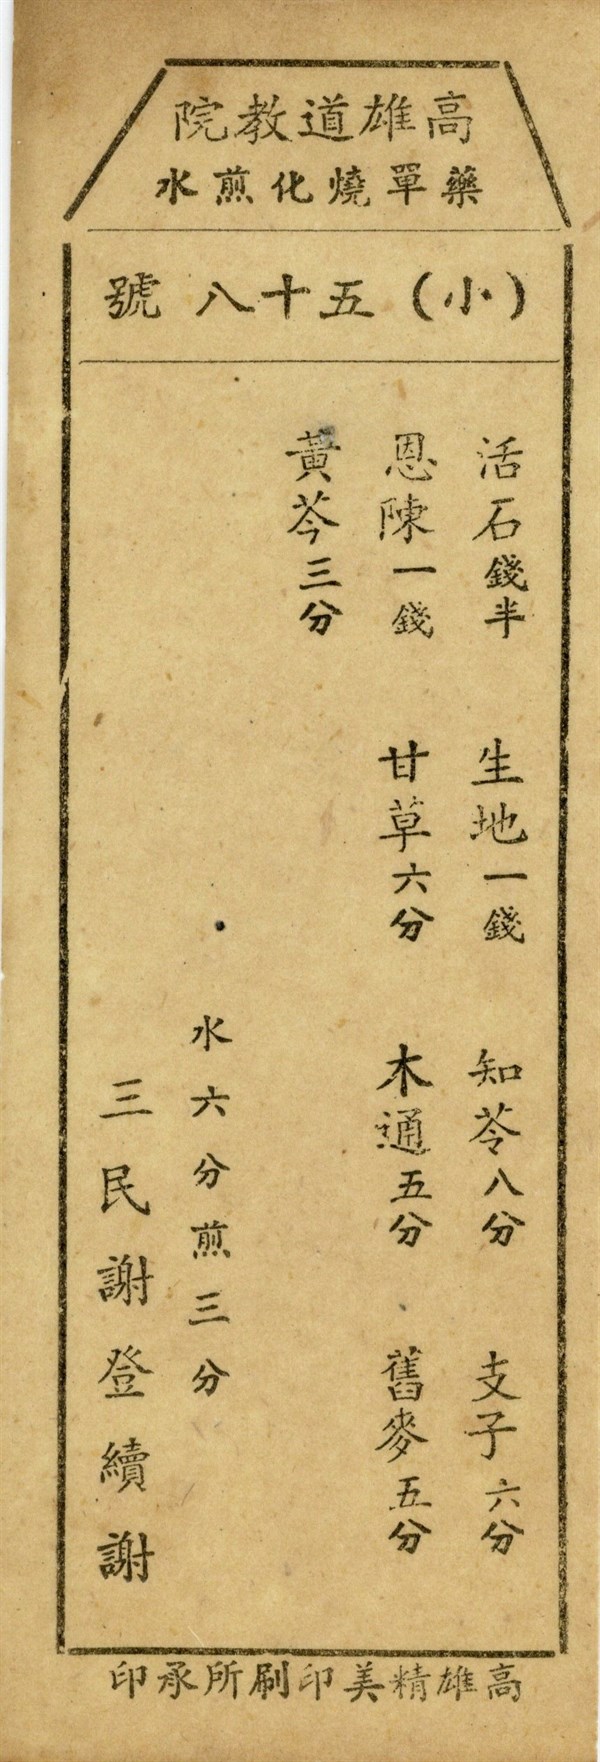 高雄道教院
藥單燒化煎水
（小）五十八號
活石錢半　生地一錢　知苓八分　支子六分
恩陳一錢　甘草六分　木通五分　舊麥五分
黃芩三分
水六分煎三分
三民謝登續謝
高雄精美印刷所承印